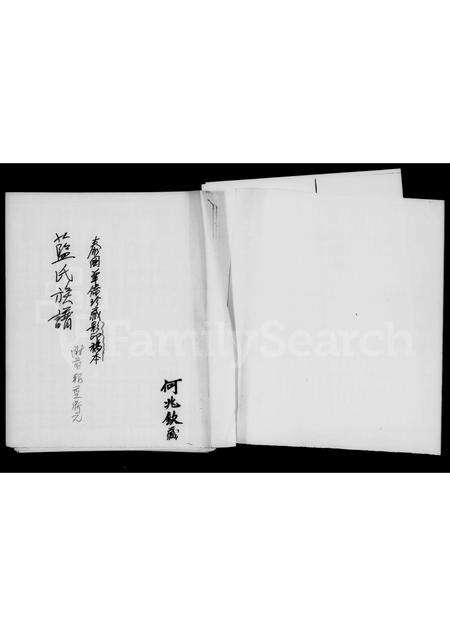 何兆欽藏
泰國華僑珍藏影印稿本
藍氏族譜
FamilySearch